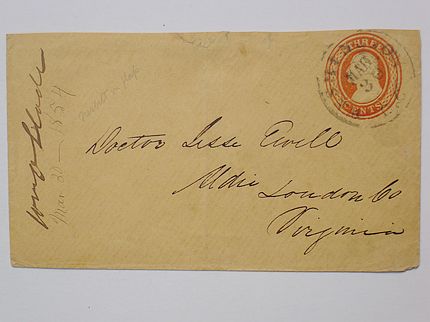 THREE
CENTS
MAR
2
Doctor Jesse Ewell
Aldie
Loudon Co
Virginia
Wm Slade
Mar 20 - 1854